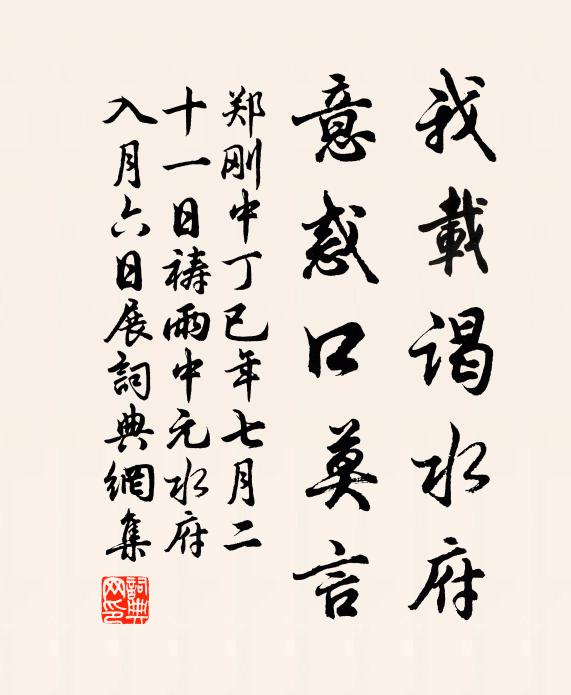 我載謁水府
意惑口莫言
郑刚中丁巳年七月二
十一日禱雨中元水府
入月六日展詞典網集
詞典网印